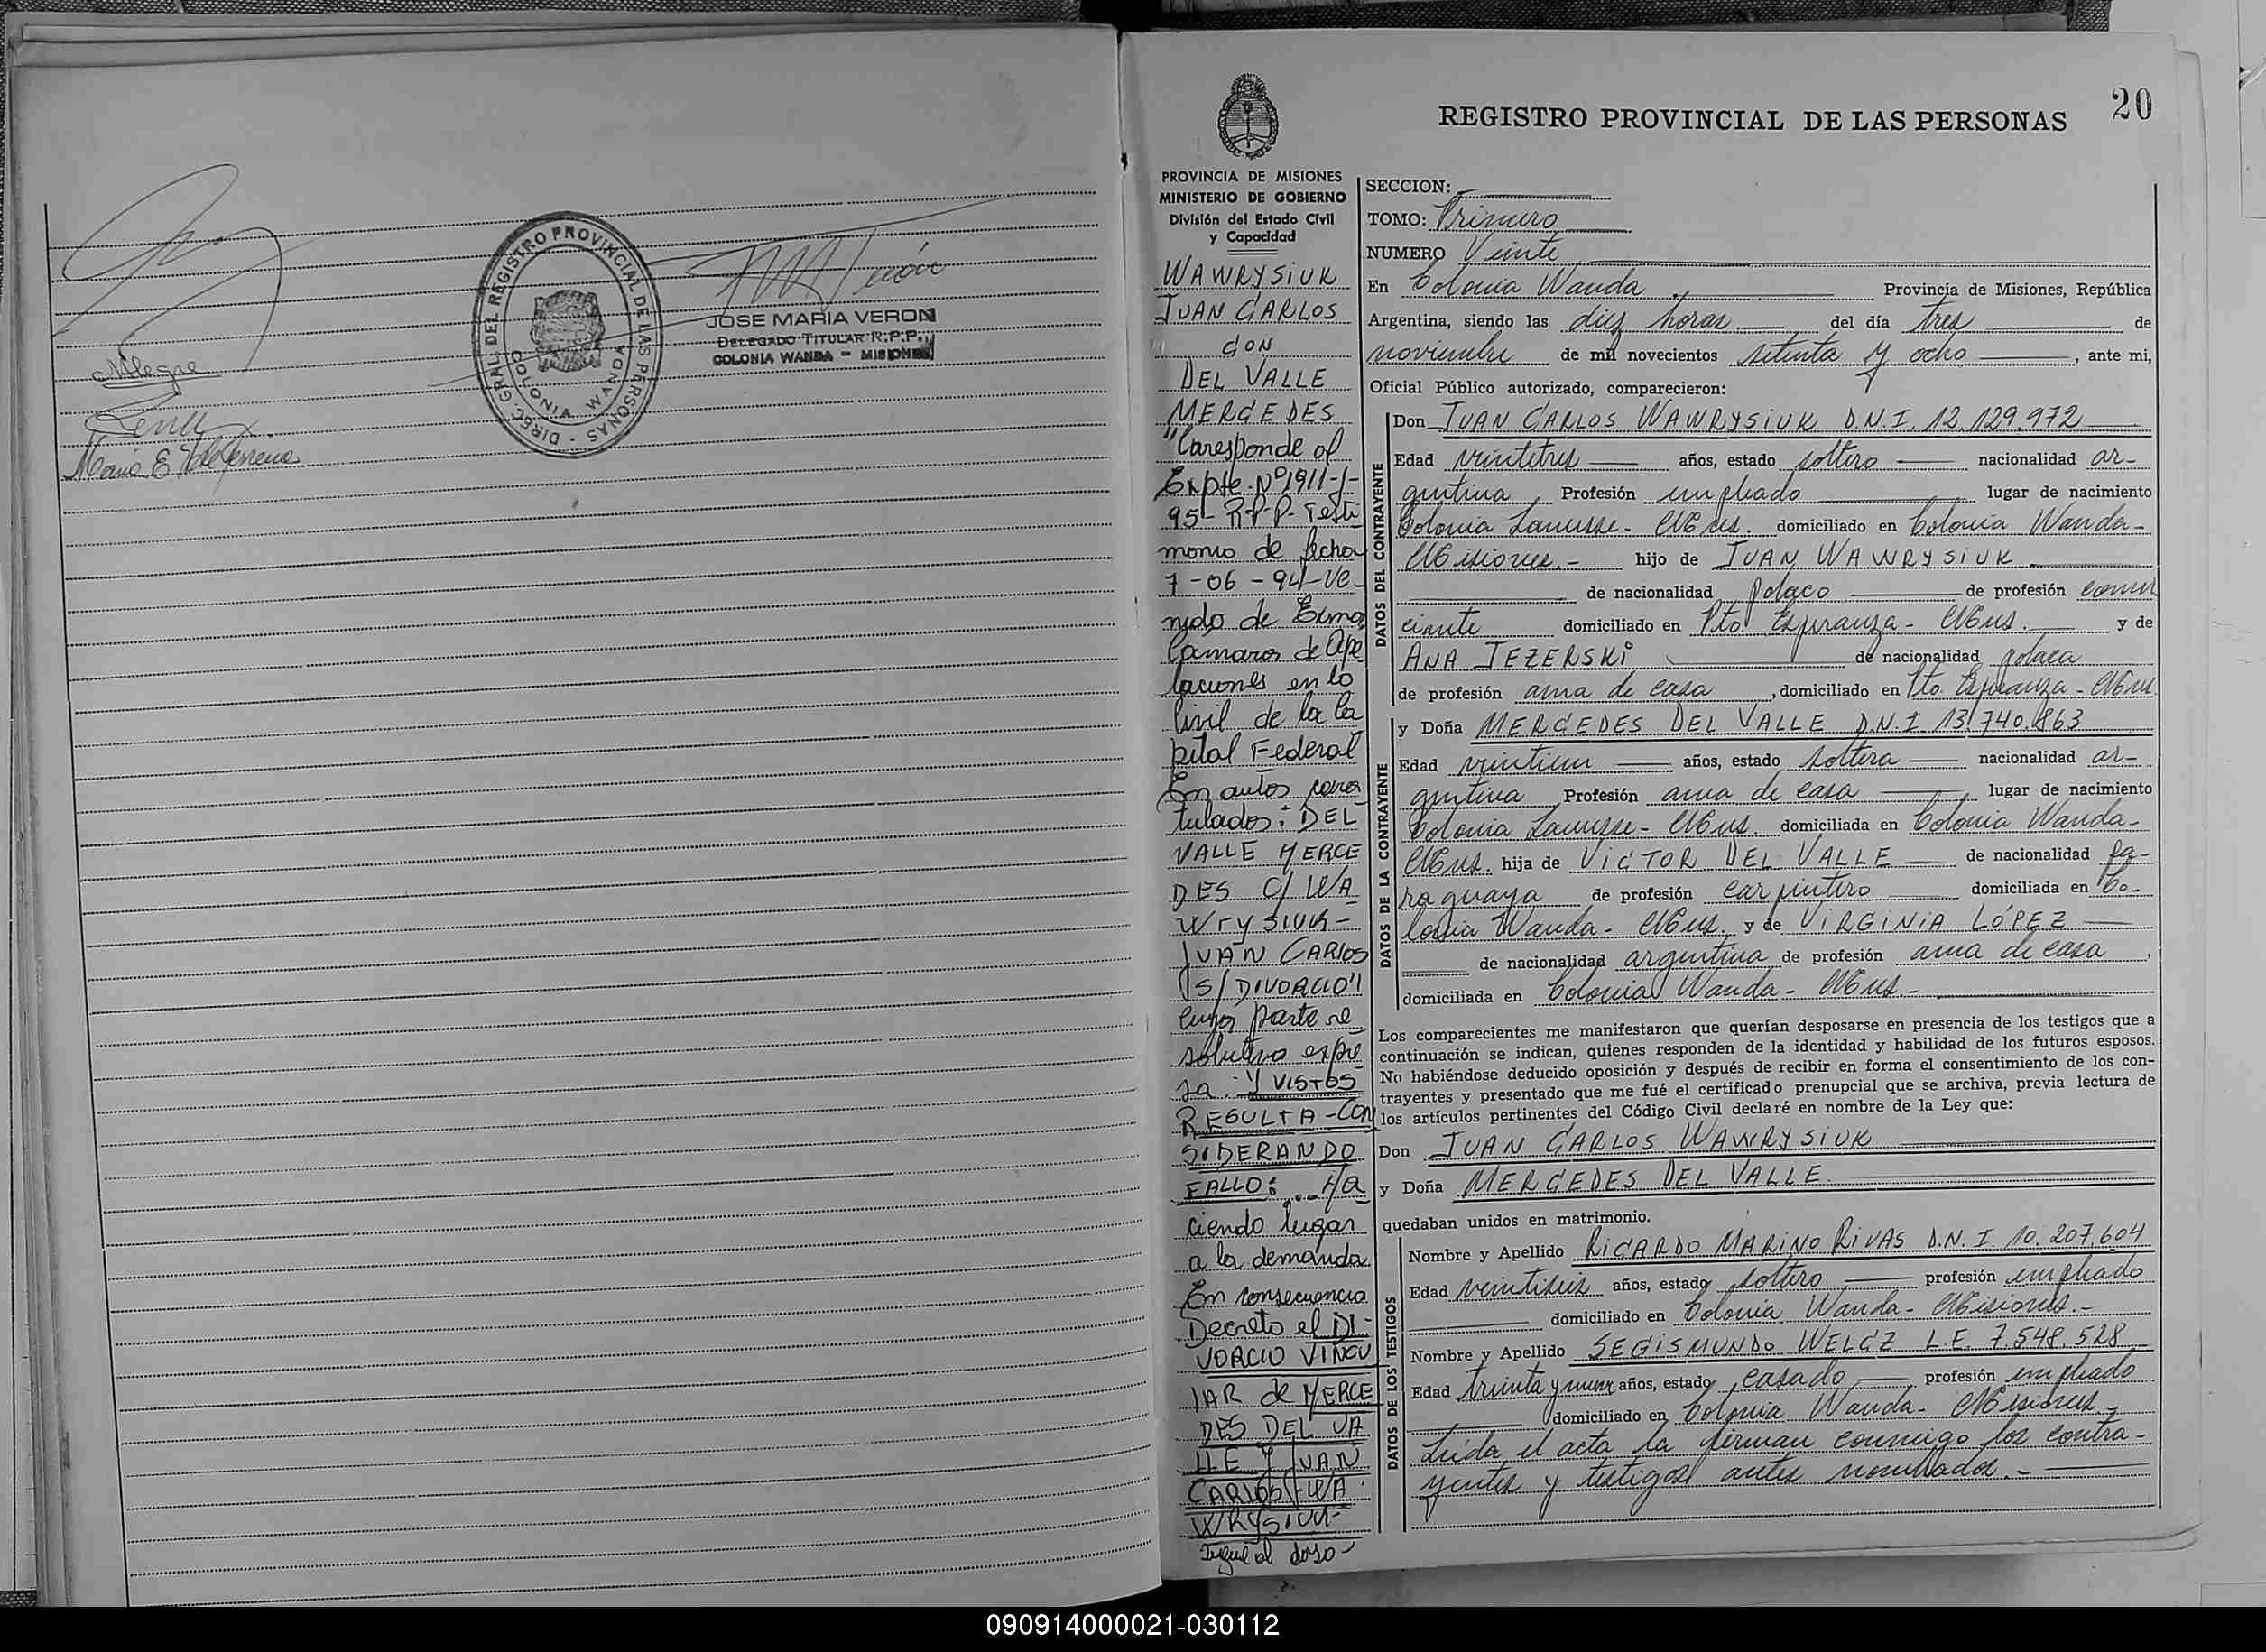 DIREC. GRAL DEL REGISTRO PROVINCIAL DE LAS PERSONAS -
COLONIA WANDA
JOSE MARIA VERON
DELEGADO TITULAR R.P.P.
COLONIA WANDA - MISIONES
Alegre
Maria E.
20
REGISTRO PROVINCIAL DE LAS PERSONAS
PROVINCIA DE MISIONES
MINISTERIO DE GOBIERNO
División del Estado Civil
y Capacidad
WAWRYSIUK
JUAN CARLOS
CON
DEL VALLE
MERCEDES
"Coresponde al
Expte. Nº 1911-J-
95- R-P-P- Testi
monio de fecha
7-06-94-Ve-
nido de Exma
Camara de Ape
laciones en lo
Civil de la Ca
pital Federal
En autos cara
tulados: DEL
VALLE MERCE
DES C/ WA
WrySIUK-
JUAN CARLOS
S/ DIVORCIO"
cuya parte re
solutiva expre
sa: Y VISTOS
RESULTA-CON
SIDERANDO
FALLO:...Ha
ciendo lugar
a la demanda.
En consecuencia
Decreto el DI-
VORCIO VINCU
LAR de MERCE
DES DEL VA
LLE Y JUAN
CARLOS WA
WRYSIUK-
sigue al dorso-
SECCION:
TOMO: Primero
NUMERO Veinte
En Colonia Wanda, Provincia de Misiones, República
Argentina, siendo las diez horas del día tres de
noviembre de mil novecientos setenta y ocho, ante mi,
Oficial Público autorizado, comparecieron:
DATOS DEL CONTRAYENTE
Don JUAN CARLOS WAWRYSIUK D.N.I. 12.129.972
Edad veintitres años, estado soltero nacionalidad ar-
gentina Profesión empleado lugar de nacimiento
Colonia Lanusse- Mnes. domiciliado en Colonia Wanda-
Misiones.- hijo de JUAN WAWRYSIUK
de nacionalidad polaco de profesión comer
ciante domiciliado en Pto. Esperanza- Mnes. y de
ANA JEZERSKI de nacionalidad polaca
de profesión ama de casa, domiciliado en Pto. Esperanza- Mnes.
DATOS DE LA CONTRAYENTE
y Doña MERCEDES DEL VALLE D.N.I. 13.740.863
Edad veintiun años, estado soltera nacionalidad ar-
gentina Profesión ama de casa lugar de nacimiento
Colonia Lanusse- Mnes. domiciliada en Colonia Wanda-
Mnes. hija de VICTOR DEL VALLE de nacionalidad pa-
raguaya de profesión carpintero domiciliada en Co-
lonia Wanda- Mnes. y de VIRGINIA LÓPEZ
de nacionalidad argentina de profesión ama de casa,
domiciliada en Colonia Wanda- Mnes.-
Los comparecientes me manifestaron que querían desposarse en presencia de los testigos que a
continuación se indican, quienes responden de la identidad y habilidad de los futuros esposos.
No habiéndose deducido oposición y después de recibir en forma el consentimiento de los con-
trayentes y presentado que me fué el certificado prenupcial que se archiva, previa lectura de
los artículos pertinentes del Código Civil declaré en nombre de la Ley que:
Don JUAN CARLOS WAWRYSIUK
y Doña MERCEDES DEL VALLE.
quedaban unidos en matrimonio.
DATOS DE LOS TESTIGOS
Nombre y Apellido RICARDO MARINO RIVAS D.N.I 10.207.604
Edad veintiseis años, estado soltero profesión empleado
domiciliado en Colonia Wanda- Misiones.-
Nombre y Apellido SEGISMUNDO WELCZ L.E. 7.548.528
Edad treinta y nueve años, estado casado profesión empleado
domiciliado en Colonia Wanda- Misiones.-
Leída el acta la firman conmigo los contra-
yentes y testigos antes nombrados.-
090914000021-030112